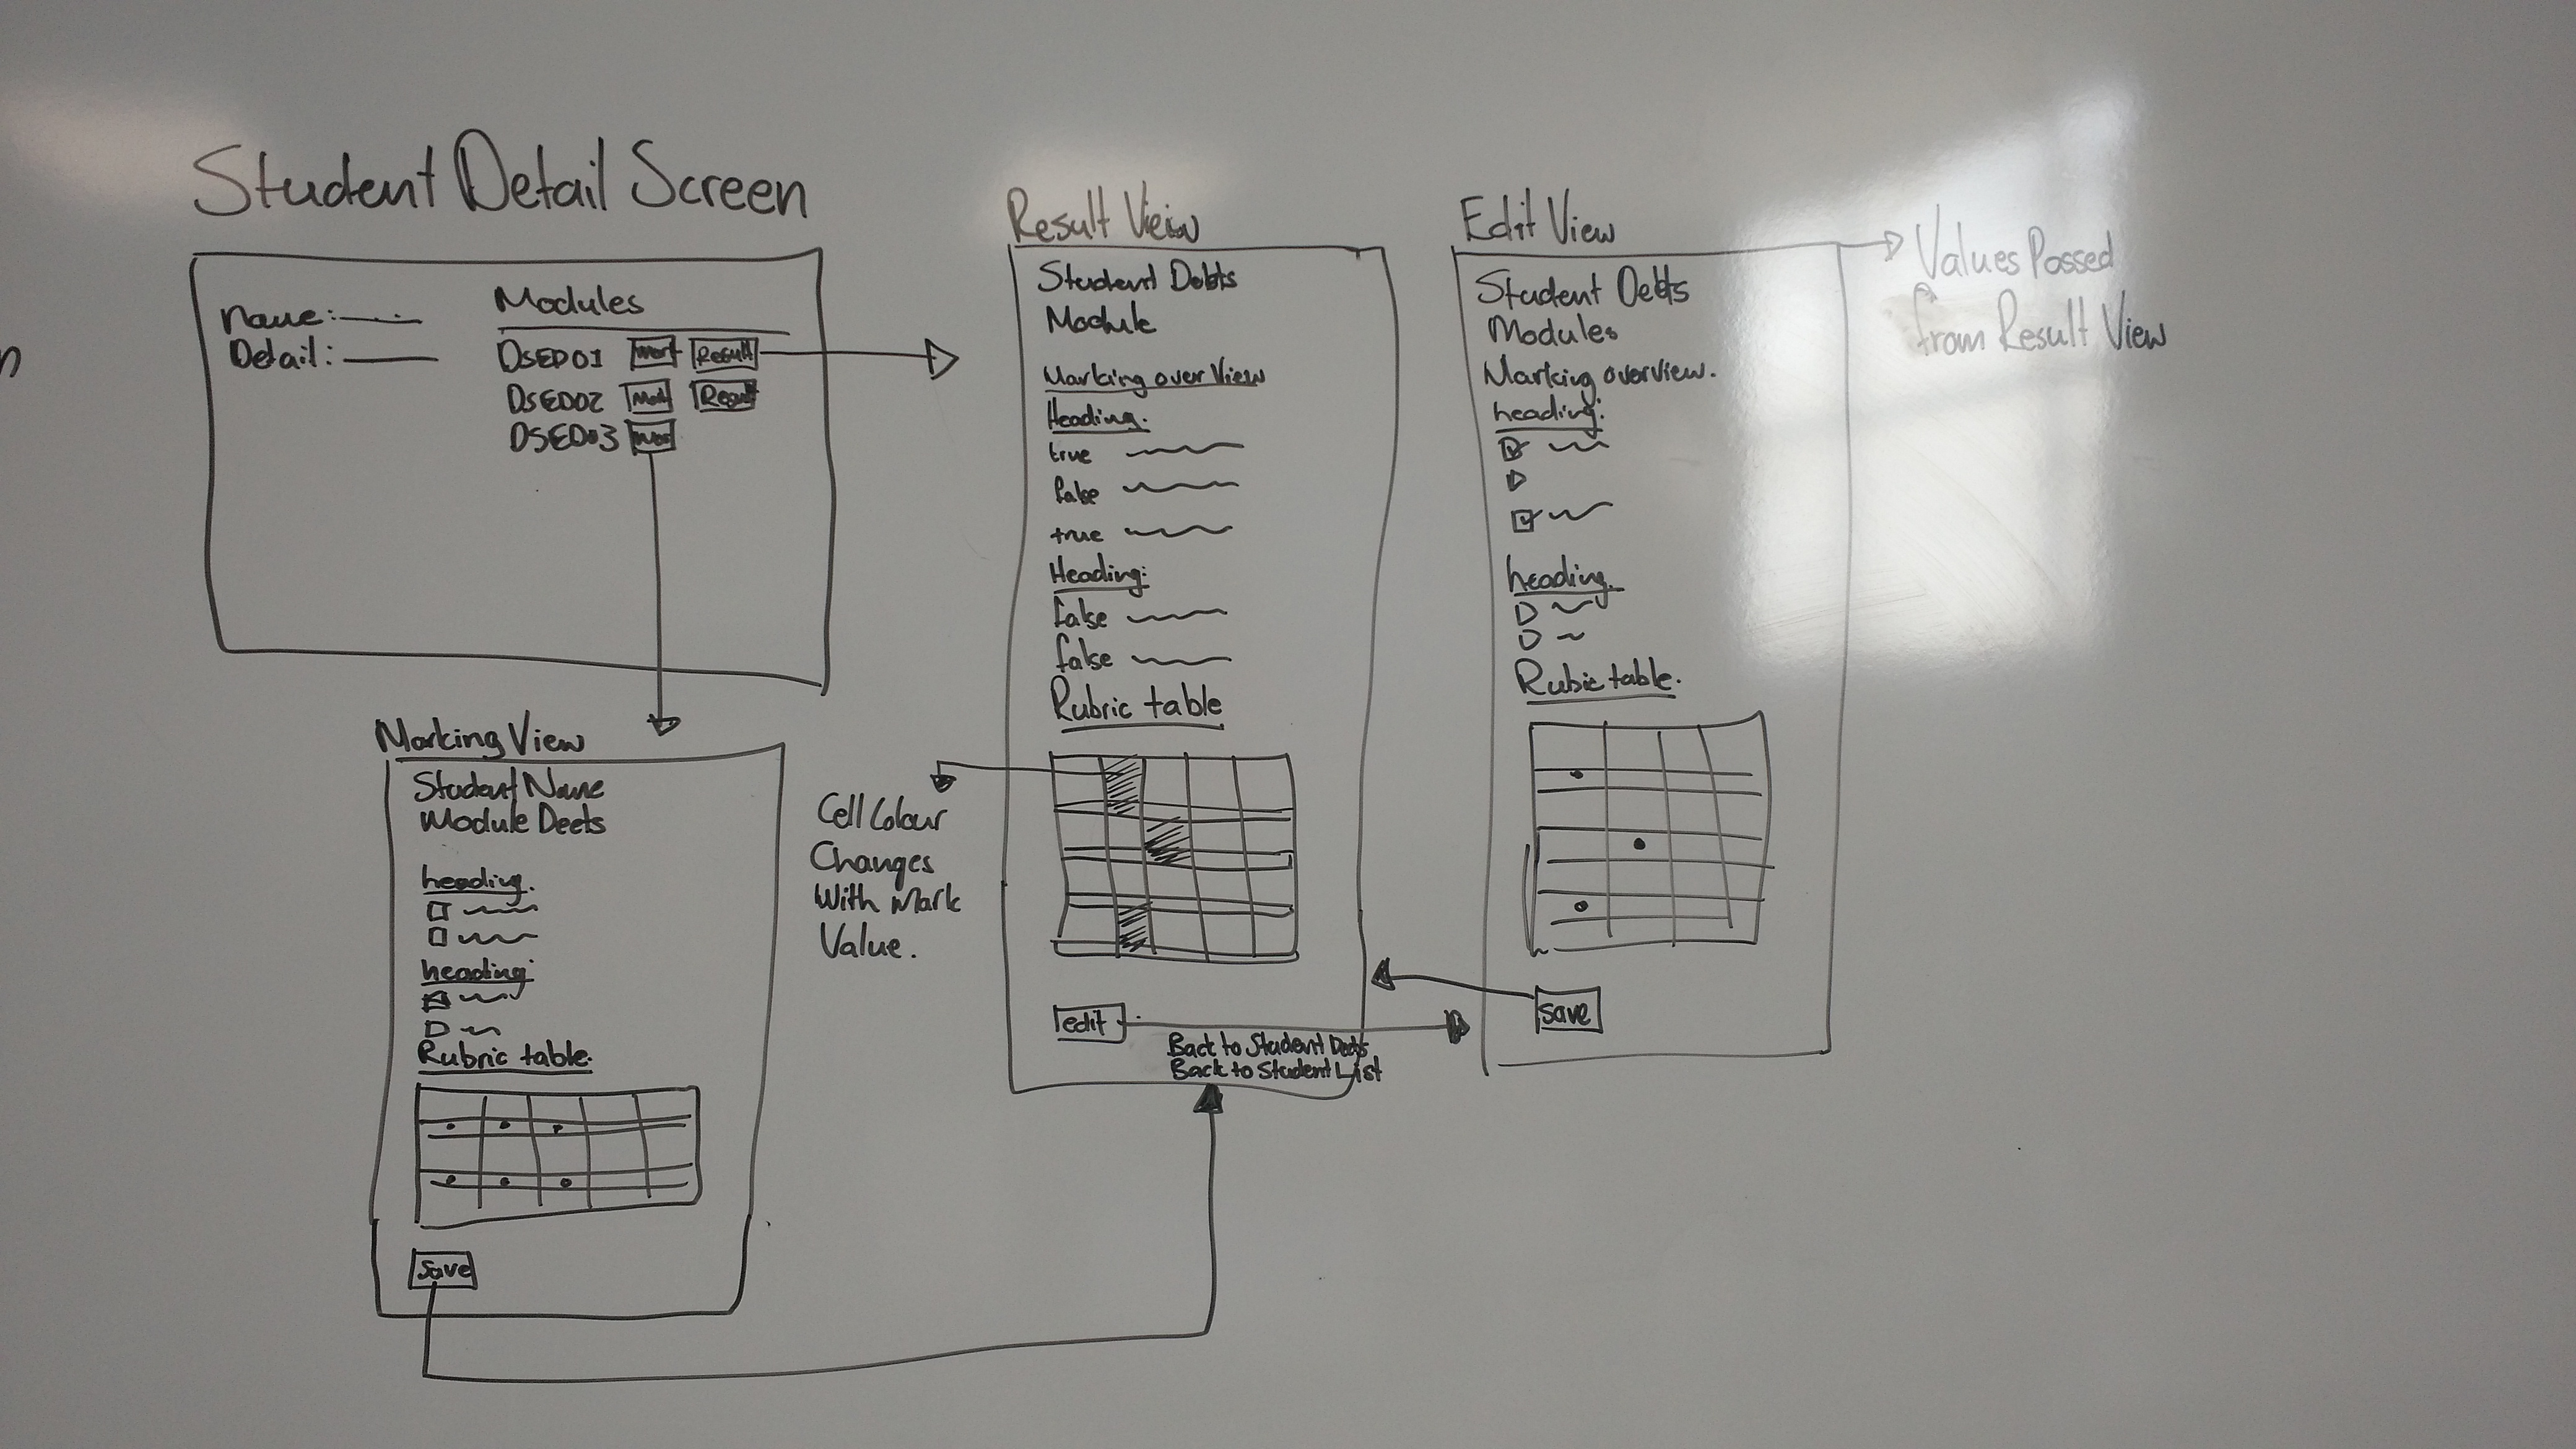 Student Detail Screen
Name:
Detail:
Modules
DSED01 Mark Result
DSED02 Mark Result
DSED03 Mark
Marking View
Student Name
Module Deets
heading.
heading:
Rubric table.
Save
Result View
Student Debts
Module
Marking over View
Heading:
true
false
true
Heading:
false
false
Rubric table
Cell Colour
Changes
With Mark
Value.
edit
Back to Student Deets
Back to Student List
Edit View
Student Debts
Modules
Marking overview.
heading:
heading.
Rubic table.
Save
Values Passed
from Result View